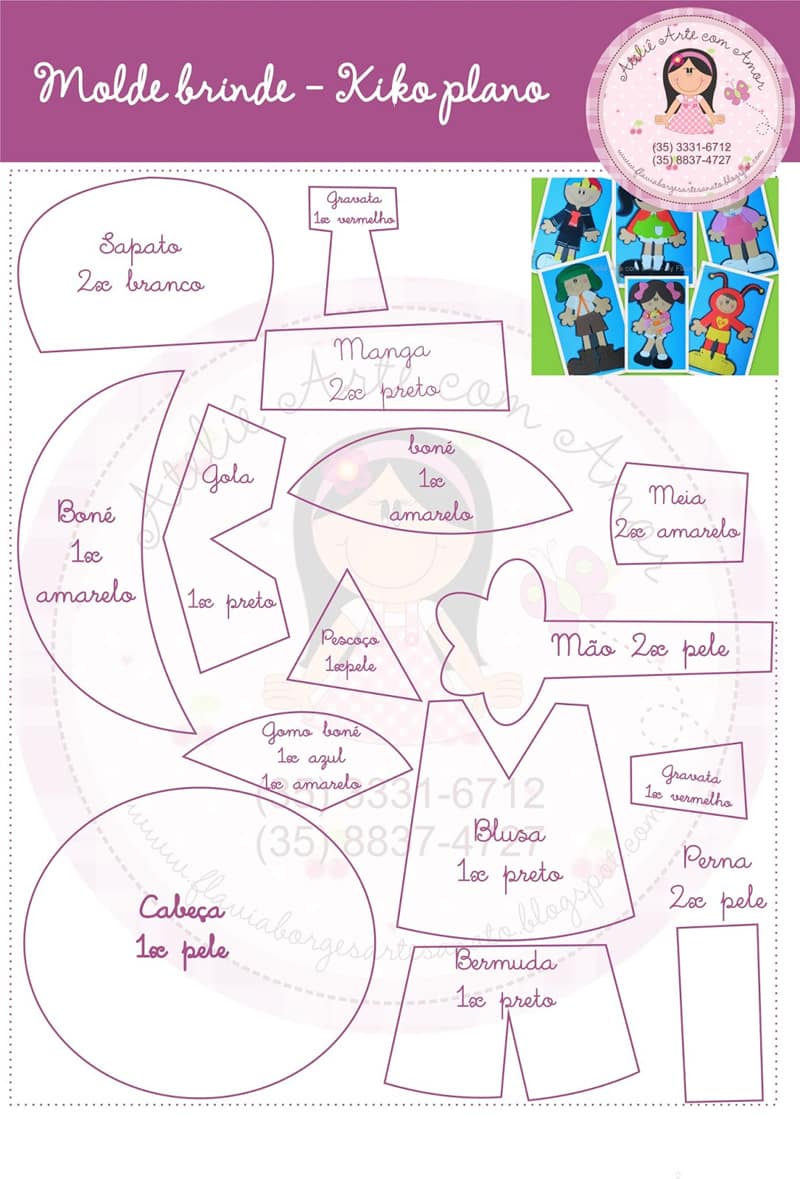 Molde brinde - Kiko plano
Ateliê Arte com Amor
(35) 3331-6712
(35) 8837-4727
www.flaviaborgesartesanato.blogspot.com
Sapato
2x branco
Gravata
1x vermelho
Manga
2x preto
Ateliê Arte com Amor
boné
1x
amarelo
Gola
1x preto
Meia
2x amarelo
Boné
1x
amarelo
Pescoço
1xpele
Mão 2x pele
Gomo boné
1x azul
1x amarelo
Gravata
1x vermelho
(35) 3331-6712
(35) 8837-4727
Blusa
1x preto
Perna
2x pele
Cabeça
1x pele
www.flaviaborgesartesanato.blogspot.com
Bermuda
1x preto